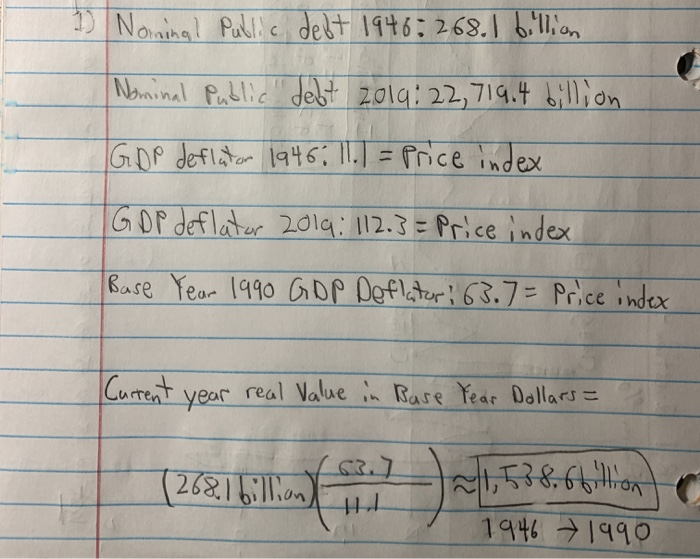 1) Nominal Public debt 1946: 268.1 billion
Nominal Public debt 2019: 22,719.4 billion
GDP deflator 1946: 11.1 = Price index
GDP deflator 2019: 112.3 = Price index
Base Year 1990 GDP Deflator: 63.7 = Price index
Current year real Value in Base Year Dollars =
(268.1 billion)(63.7/11.1) ≈ 1,538.6 billion
1946 → 1990